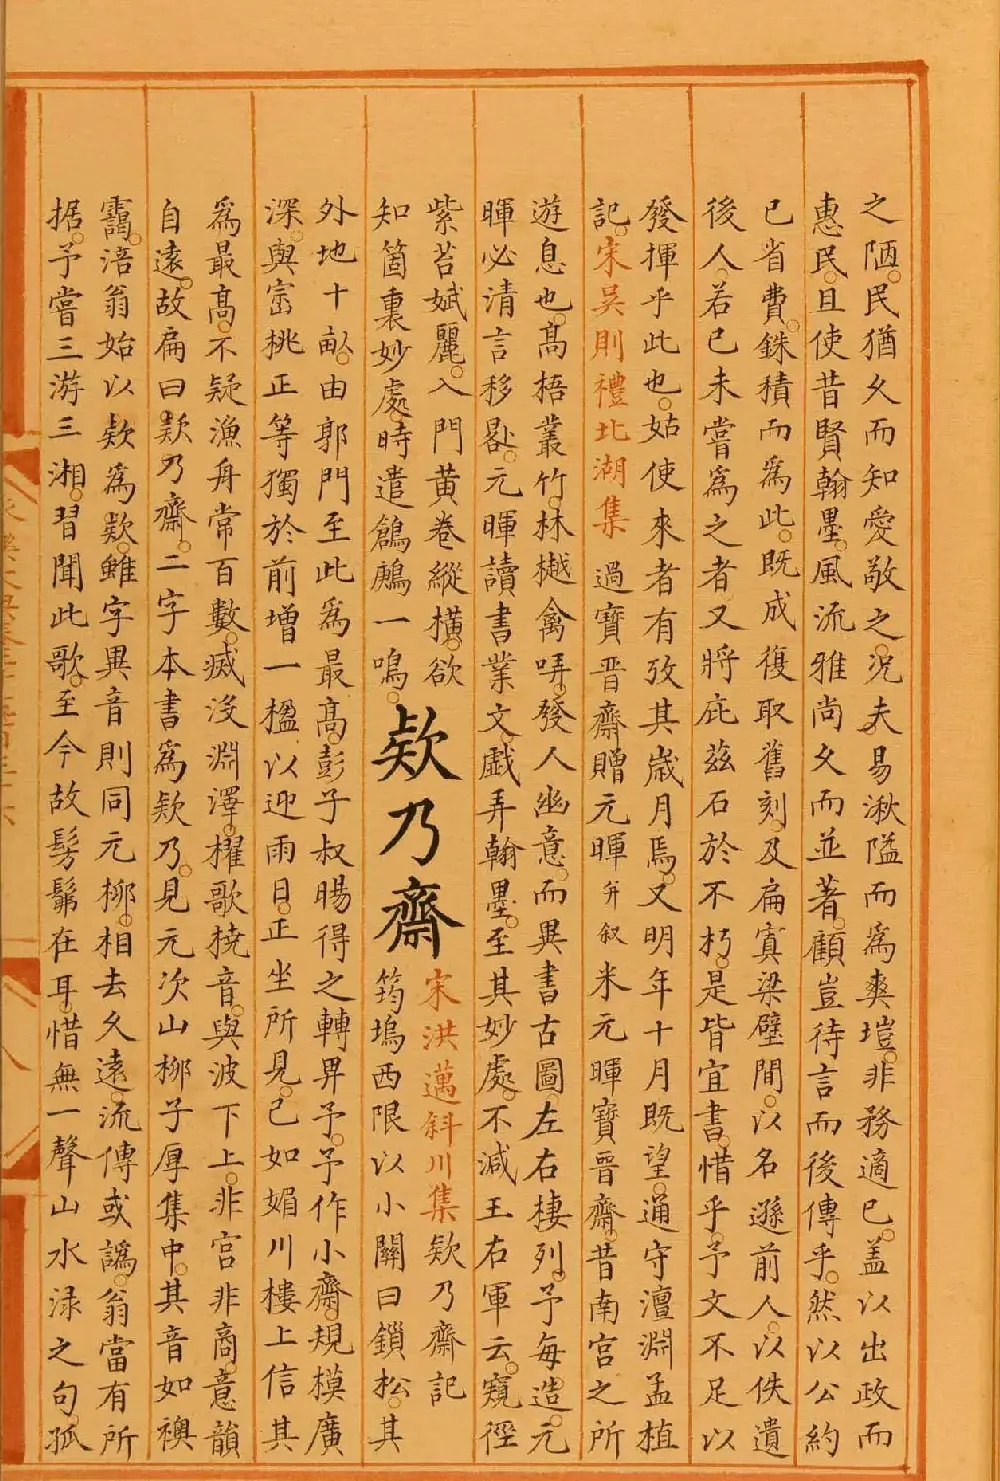 之陋。民猶久而知愛敬之。況夫。易湫隘而爲爽塏。非務適已。盖以出政而
惠民。且使昔賢翰墨。風流雅尚久而並著。顧豈待言而後傳乎。然以公約
已省費。銖積而爲此。既成復取舊刻。及扁寘梁壁間。以名遜前人。以佚遺
後人。若已未嘗爲之者。又將庇茲石於不朽。是皆宜書。惜乎。予文不足以
發揮乎此也。姑使來者有攷其歲月焉。又明年十月既望。通守澶淵孟植
記。宋吳則禮北湖集 過寶晉齋贈元暉并叙 米元暉寶晉齋。昔南宮之所
遊息也。高梧叢竹。林樾禽哢。發人幽意。而異書古圖。左右棲列。予每造。元
暉必清言移晷。元暉讀書業文。戲弄翰墨。至其妙處。不減王右軍云。窺徑
紫苔斌麗。入門黄卷縱橫。欲
知箇裏妙處。時遣鶬鶊一鳴。
欵乃齋
宋洪邁斜川集 欵乃齋記
筠塢西限以小關曰鎖松。其
外地十畝。由郭門至此爲最高。彭子叔暘得之轉畀予。予作小齋。規模廣
深。與窑桃正等獨於前增一楹以迎雨日。正坐所見。已如媚川樓上信其
爲最高。不疑漁舟常百數。滅没淵澤。櫂歌橈音。與波下上。非宮非商。意韻
自遠。故扁曰欵乃齋。二字本書爲欵乃。見元次山柳子厚集中。其音如襖
靄。涪翁始以欵爲欵。雖字異音則同元柳。相去久遠。流傳或譌。翁當有所
据。予嘗三游三湘。習聞此歌。至今故髣髴在耳。惜無一聲山水渌之句。孤